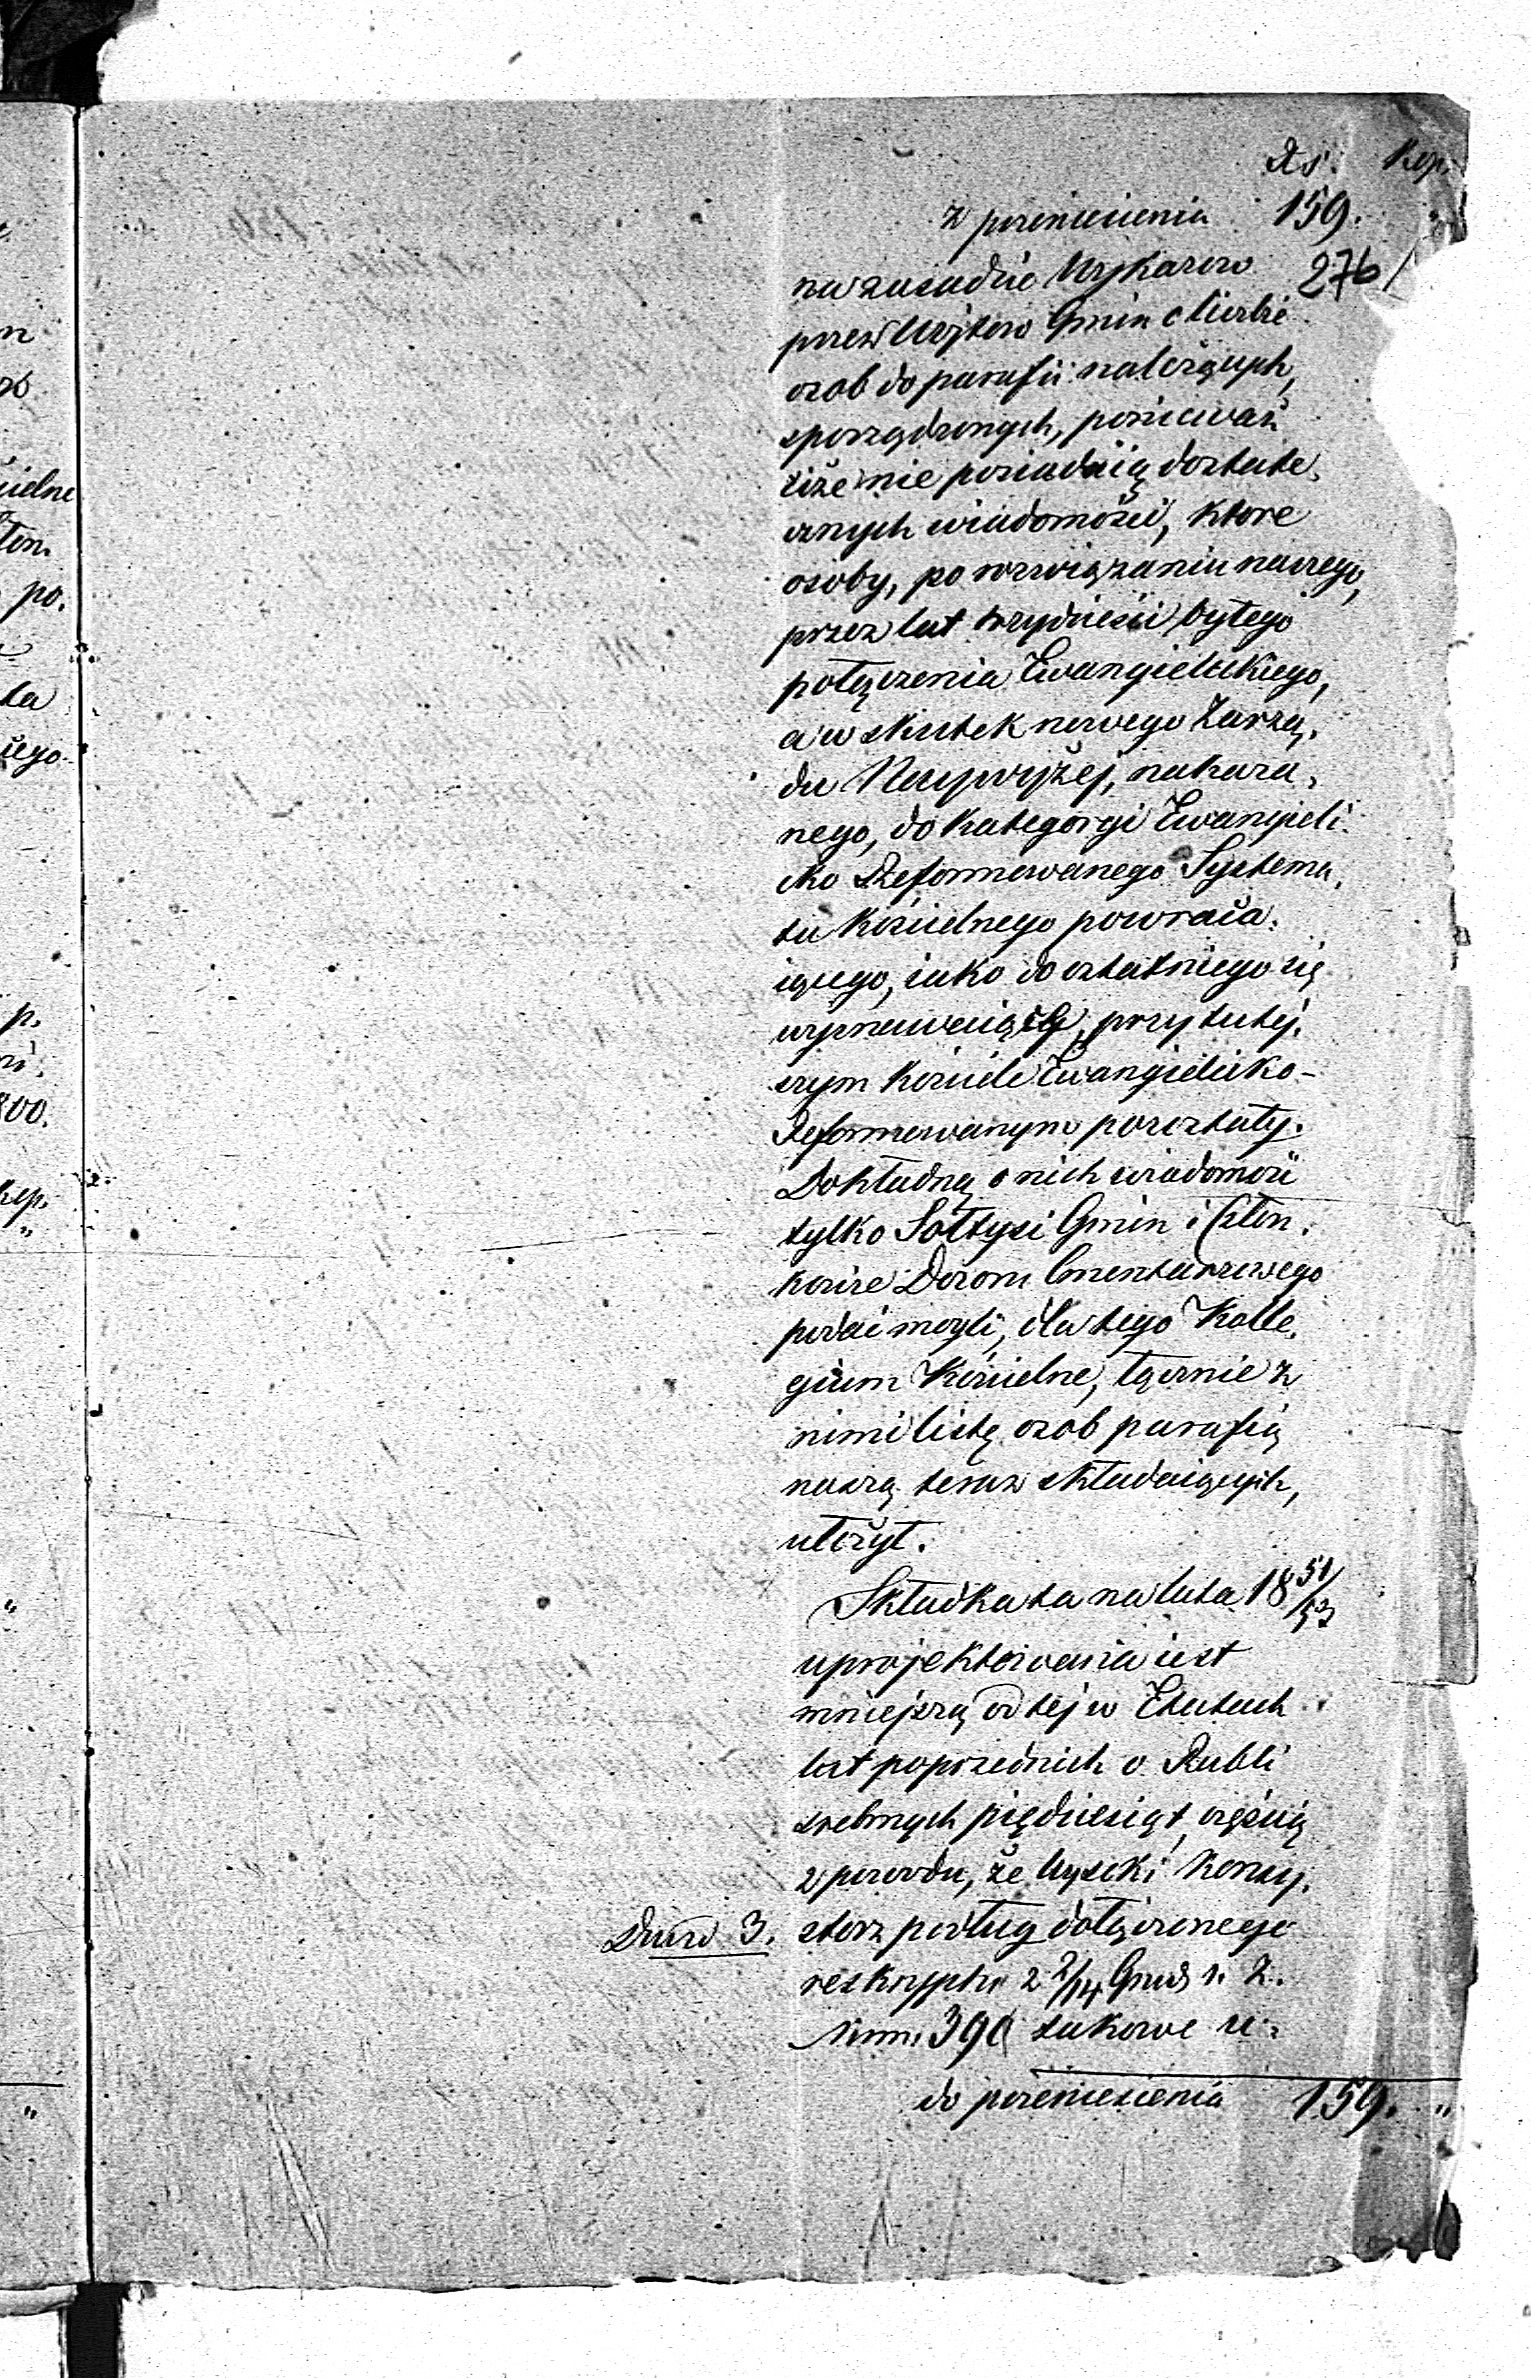 Rs. Kop.
z przeniesienia 159. "
na zasadzie Wykazów 276
przez Wójtów Gmin o liczbie
osób do parafii należących,
sporządzonych, ponieważ
ciże nie posiadaią dostate,
cznych wiadomości, które
osoby, po rozwiązaniu naszego,
przez lat trzydzieści byłego
połączenia Ewangielickiego,
a w skutek nowego Zarzą,
du Naywyżej, nakaza,
nego, do kategoryi Ewangieli
cko Reformowanego Systema,
tu kościelnego powraca,
iącego, iako do ostatniego się
wyznawaiący, przy tutéj,
szym kościele Ewangielicko-
Reformowanym pozostały.
Dokładną o nich wiadomość
tylko Sołtysi Gmin i Człon,
kowie Dozoru Cmentarzowego
podać mogli, dla tego Kolle,
gium Kościelne, łącznie z
nimi listę osób parafią
naszą teraz składaiących,
ułożył.
Składka ta na lata 18 51/53
uprojektowania iest
mniejszą od téj w Etatach
lat poprzednich o Rubli
srebrnych pięćdziesiąt, częścią
z powodu, że Wysoki Konsy,
Dowód 3. storz podług dołączonego
reskryptu z 2/14 Grud r. z.
Num. 390 takowe u-
do przeniesienia 159. "
ielne
po.
ta
iego
p.
800.
kop.
"
"
"